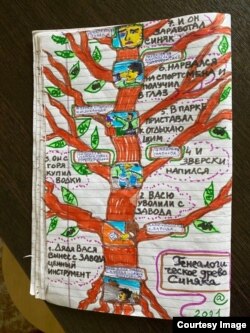 7. И ОН
ЗАРАБОТАЛ
СИНЯК
6. НАРВАЛСЯ
НА СПОРТСМЕНА И
ПОЛУЧИЛ
В ГЛАЗ
5. В ПАРКЕ
ПРИСТАВАЛ
К ОТДЫХАЮ
ЩИМ
4 И
ЗВЕРСКИ
НАПИЛСЯ
3. ОН С
ГОРЯ
КУПИЛ
ВОДКИ
2. ВАСЮ
УВОЛИЛИ С
ЗАВОДА
1. ДЯДЯ ВАСЯ
ВЫНЕС С ЗАВОДА
ЦЕННЫЙ
ИНСТРУМЕНТ
Генеалоги
ческое древо
Синяка
@
2021
Courtesy Image